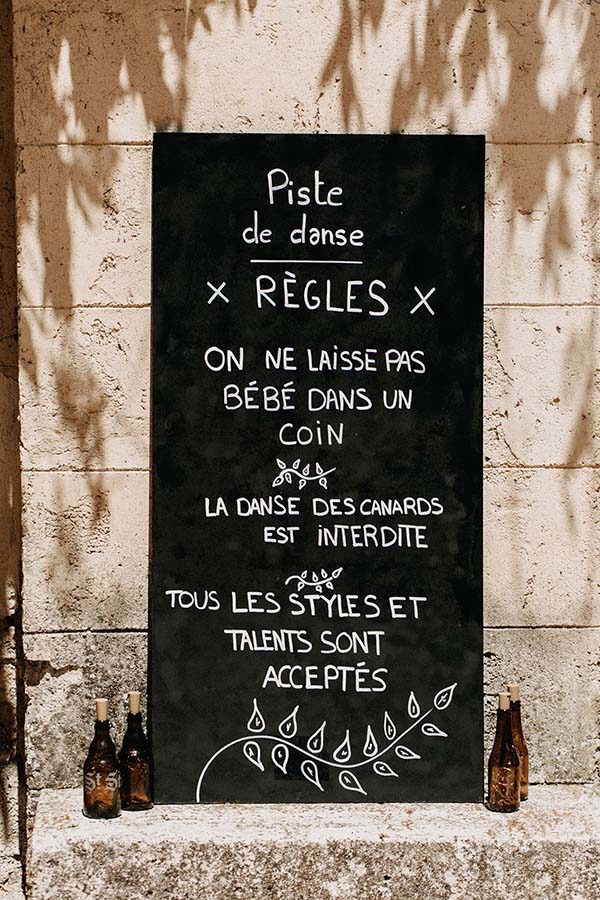 Piste
de danse
x RÈGLES x
ON NE LAISSE PAS
BÉBÉ DANS UN
COIN
LA DANSE DES CANARDS
EST INTERDITE
TOUS LES STYLES ET
TALENTS SONT
ACCEPTÉS